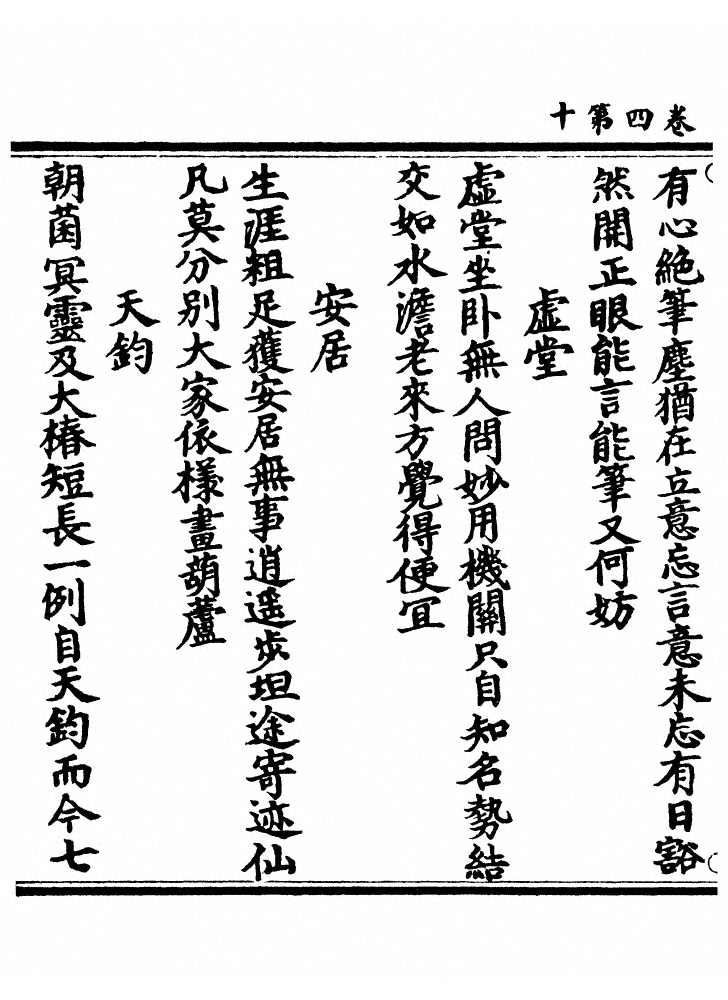 卷四第十
有心絕筆塵猶在立意忘言意未忘有日豁
然開正眼能言能筆又何妨
虛堂
虛堂坐卧無人問妙用機關只自知名勢結
交如水澹老來方覺得便宜
安居
生涯粗足獲安居無事逍遥步坦途寄迹仙
凡莫分别大家依樣畫葫蘆
天鈞
朝菌冥靈及大椿短長一例自天鈞而今七